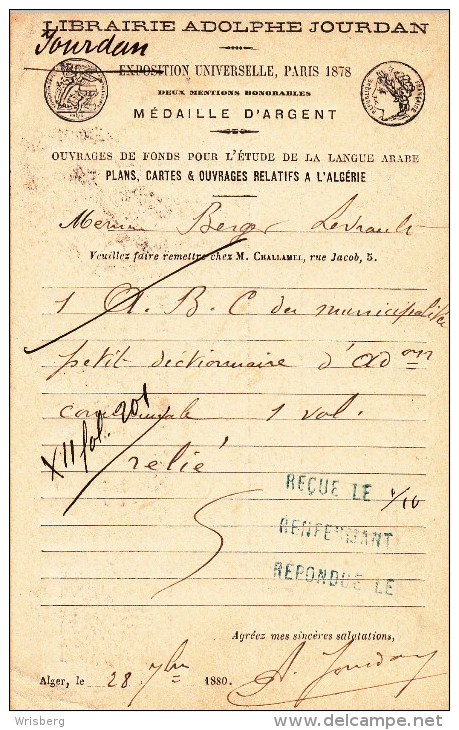 LIBRAIRIE ADOLPHE JOURDAN
Jourdan
EXPOSITION UNIVERSELLE, PARIS 1878
DEUX MENTIONS HONORABLES
MÉDAILLE D'ARGENT
OUVRAGES DE FONDS POUR L'ÉTUDE DE LA LANGUE ARABE
PLANS, CARTES & OUVRAGES RELATIFS A L'ALGÉRIE
Berger Levrault
Veuillez faire remettre chez M. CHALLAMEL, rue Jacob, 5.
1 A. B. C du municipalité
petit dictionnaire d'adon
communale 1 vol.
XII fol. 201
relié
REÇUE LE 1/10
RENFERMANT
REPONDUE LE
Agréez mes sincères salutations,
Alger, le 28 7bre 1880. A. Jourdan
Wrisberg
delcampe.net